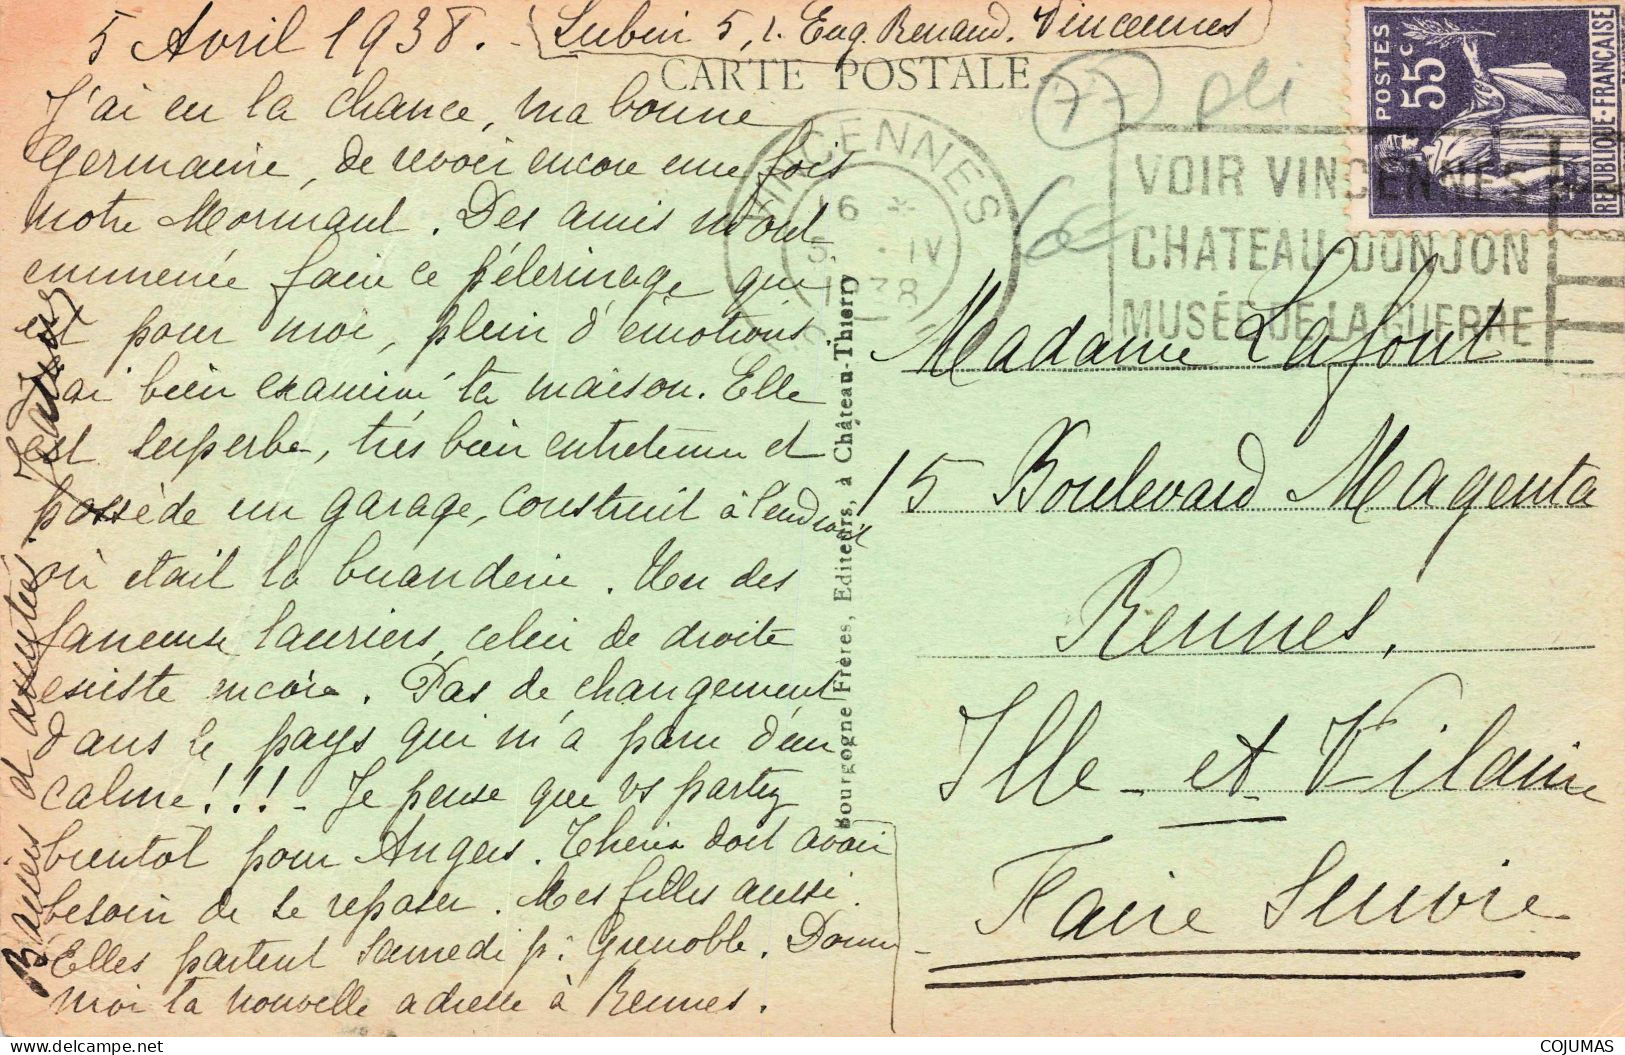 5 Avril 1938. - Lubin 5, r. Eug. Renaud. Vincennes
CARTE POSTALE
J'ai eu la chance, ma bonne
Germaine, de revoir encore une fois
notre Mormant. Des amis m'ont
emmenée faire ce pélerinage qui
est pour moi, plein d'émotions
J'ai bien examiné ta maison. Elle
est superbe, très bien entretenue et
possède un garage, construit à l'endroit
où était la buanderie. Un des
fameuse lauriers, celui de droite
existe encore. Pas de changement
dans le pays qui m'a paru d'un
calme!!! - Je pense que vs partez
bientôt pour Angers. doit avoir
besoin de se reposer. Mes filles aussi.
Elles partent Samedi p: Grenoble. Donne
moi ta nouvelle adresse à Rennes.
Baisers d'amitiés.
Bourgogne Frères, Editeurs, à Château-Thierry
77
pli
VINCENNES
16 *
5 - IV
1938
VOIR VINCENNES
CHATEAU-DONJON
MUSÉE DE LA GUERRE
POSTES
55c
REPUBLIQUE-FRANÇAISE
Madame Lafont
15 Boulevard Magenta
Rennes,
Ille-et-Vilaine
Faire Suivre
COJUMAS